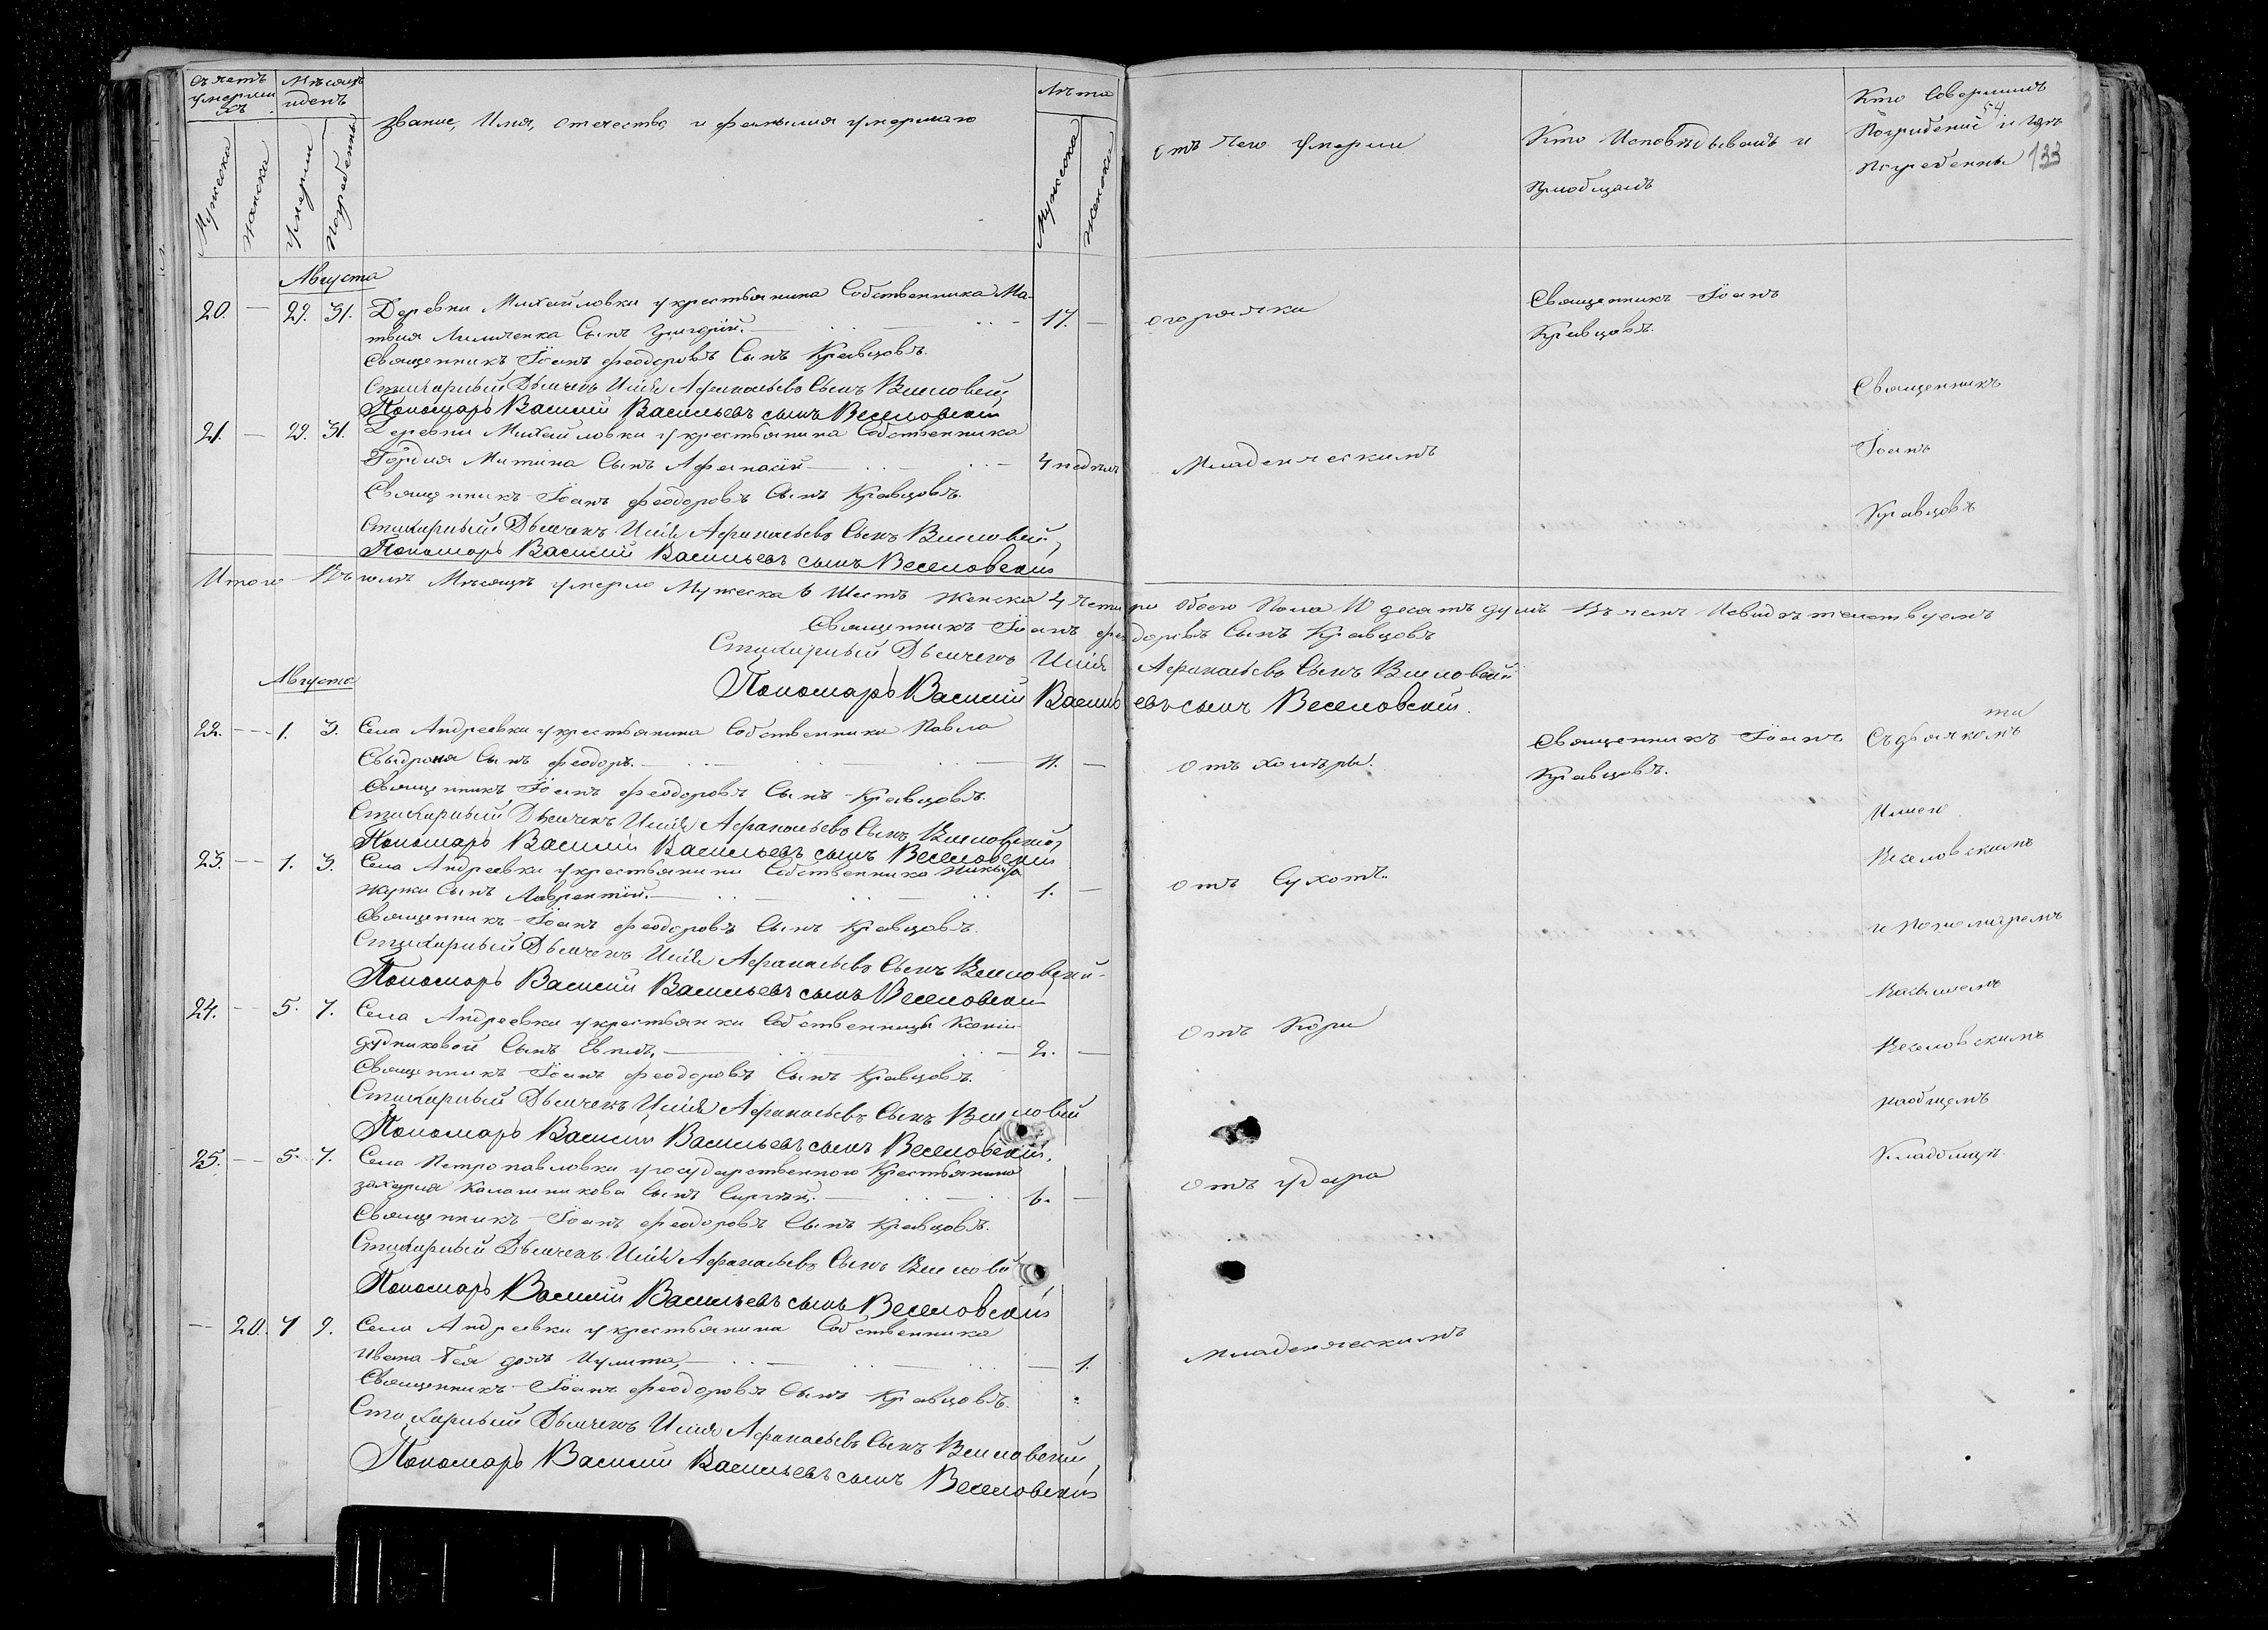 Счетъ умерши хъ
Мѣсяцъ и день
Звание, Имя, отечество, и фамилия умершаго
Лѣта
Мужеска
женска
умерли
Погребены
Мужеска
женска
отъ Чего умерли
Кто Исповѣдывалъ и
Приобщалъ
Кто Совершилъ
Погрибение и где
Погребенны
54
133
Августа
20. — 29. 31. Деревни Михайловки у крестьянина Собственника Ма-
твия Сынъ Григорій. — 17. —
Священникъ Іоанъ Феодоровъ Сынъ Кравцовъ.
Стихарный Дьячекъ Илія Афанасьевъ Сынъ Веселовскій,
Пономарь Василій Васильевъ сынъ Веселовскій
огорячки
Священникъ Іоанъ
Кравцовъ.
21. — 29. 31. Деревни Михайловки у крестьянина Собственника
Гордия Митина Сынъ Афанасій — 4 недѣль
Священникъ Іоанъ Феодоровъ Сынъ Кравцовъ.
Стихарный Дьячекъ Илія Афанасьевъ Сынъ Веселовскій,
Пономарь Василій Васильевъ сынъ Веселовскій
Младенческимъ
Итого Въ Мѣсяцѣ умерло Мужеска 6 Шесть Женска 4 Четыри Обоего Пола 10 десять душъ Въ чемъ Исвидѣтельствуемъ
Священникъ Іоанъ Феодоровъ Сынъ Кравцовъ
Стихарный Дьячекъ Илія Афанасьевъ Сынъ Веселовскій
Пономарь Василій Васильевъ сынъ Веселовскій.
Августа
22. — 1. 3. Села Андреевки у крестьянина Собственника Павла
Свыдрона Сынъ Феодоръ. — 11. —
Священникъ Іоанъ Феодоровъ Сынъ Кравцовъ.
Стихарный Дьячекъ Илія Афанасьевъ Сынъ Веселовскій,
Пономарь Василій Васильевъ сынъ Веселовскій
Отъ холѣры.
Священникъ Іоанъ
Кравцовъ.
23. — 1. 3. Села Андреевки у крестьянини Собственника
Жучки Сынъ Лаврентій. — 1. —
Священникъ Іоанъ Феодоровъ Сынъ Кравцовъ.
Стихарный Дьячекъ Илія Афанасьевъ Сынъ Веселовскій
Пономарь Василій Васильевъ сынъ Веселовскій
отъ Сухотъ.
24. — 5. 7. Села Андреевки у крестьянки Собственницы Ксеніи
дудниковой Сынъ — 2. —
Священникъ Іоанъ Феодоровъ Сынъ Кравцовъ.
Стихарный Дьячекъ Илія Афанасьевъ Сынъ Веселовскій
Пономарь Василій Васильевъ сынъ Веселовскій.
Отъ Кори
25. — 5. 7. Села Петропавловки у государственного Крестьянина
захария Калашникова Сынъ Сиргѣй. — 6. —
Священникъ Іоанъ Феодоровъ Сынъ Кравцовъ.
Стихарный Дьячекъ Илія Афанасьевъ Сынъ
Пономарь Василій Васильевъ сынъ Веселовскій
отъ удара
— 20. 7 9. Села Андреевки у крестьянина Собственника
Ивана дочь Иулита, — 1.
Священникъ Іоанъ Феодоровъ Сынъ Кравцовъ.
Стихарный Дьячекъ Илія Афанасьевъ Сынъ Веселовскій,
Пономарь Василій Васильевъ сынъ Веселовскій
Младенческимъ
Священникъ
Іоанъ
Кравцовъ
Съ дьячкомъ
Илиею
Веселовскимъ
и Пономаремъ
Васильемъ
Веселовскимъ
наобщемъ
Кладбищѣ.